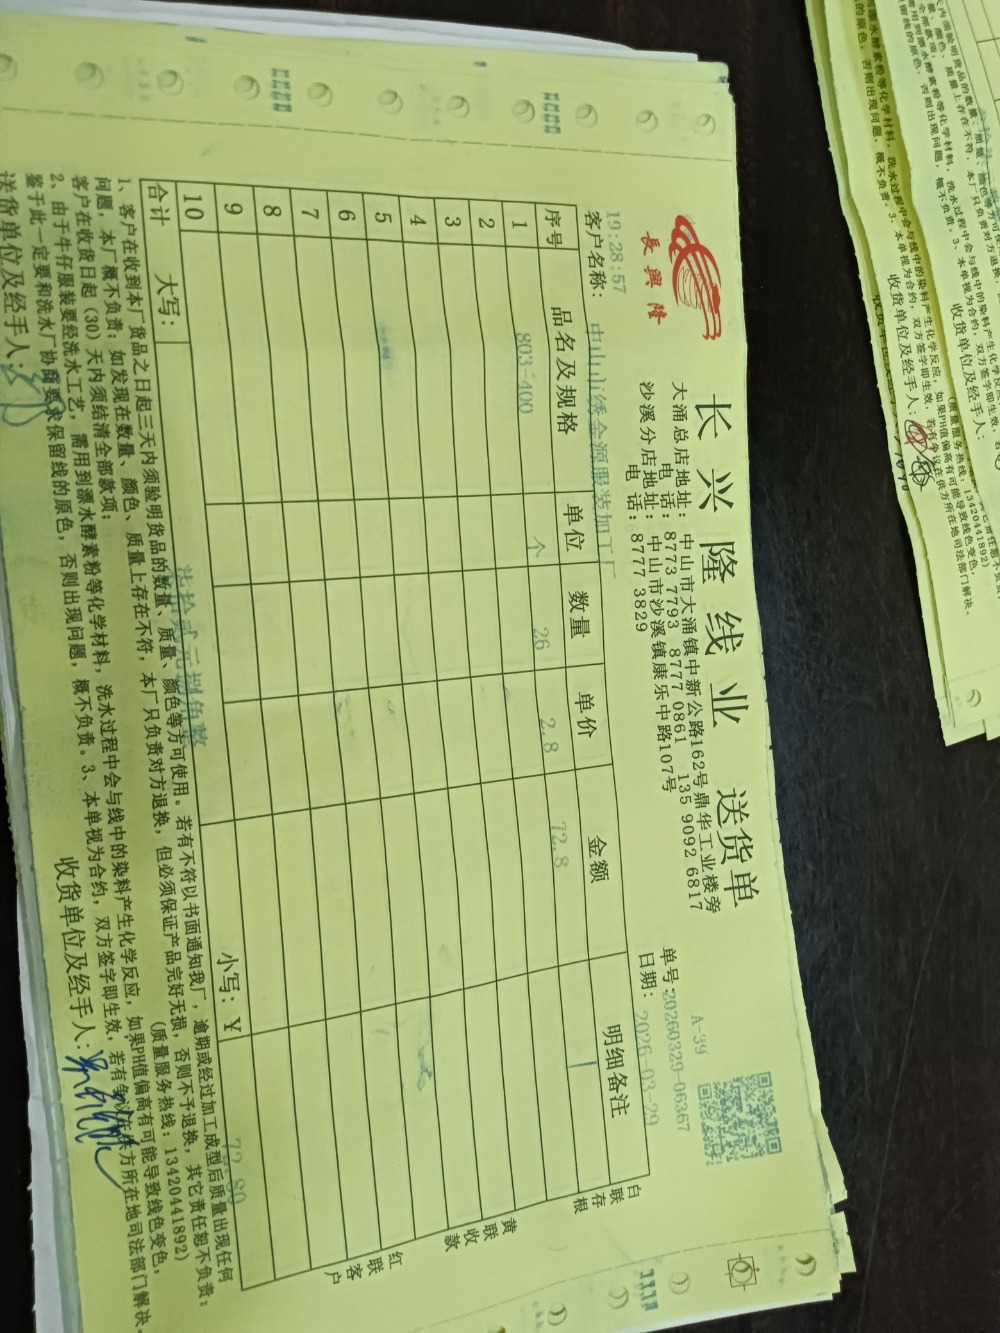 長興隆
长兴隆线业 送货单
大涌总店地址：中山市大涌镇中新公路162号鼎华工业楼旁
电话：8773 7793 8777 0861 135 9092 6817
沙溪分店地址：中山市沙溪镇康乐中路107号
电话：8777 3829
A-39
单号：20260329-06367
日期：2026-03-29
19:28:57
客户名称：中山市绣金源服装加工厂
序号 品名及规格 单位 数量 单价 金额 明细备注
1 803-400 个 26 2.8 72.8
2
3
4
5
6
7
8
9
10
合计 大写：柒拾贰元捌角整 小写：¥ 72.80
白联存根
黄联收款
红联客户
1、客户在收到本厂货品之日起三天内须验明货品的数量、质量、颜色等方可使用。若有不符以书面通知我厂，逾期或经过加工成型后质量出现任何
问题，本厂概不负责；如发现在数量、颜色、质量上存在不符，本厂只负责对方退换，但必须保证产品完好无损，否则不予退换，其它责任恕不负责；
客户在收货日起（30）天内须结清全部款项；（质量服务热线：13420441892）
2、由于牛仔服装要经洗水工艺，需用到漂水酵素粉等化学材料，洗水过程中会与线中的染料产生化学反应，如果PH值偏高有可能导致线色变色，
鉴于此一定要和洗水厂协商要求保留线的原色，否则出现问题，概不负责。3、本单视为合约，双方签字即生效，若有争议在供方所在地司法部门解决。
送货单位及经手人： 收货单位及经手人：
收货单位及经手人：
收货单位及经手人：